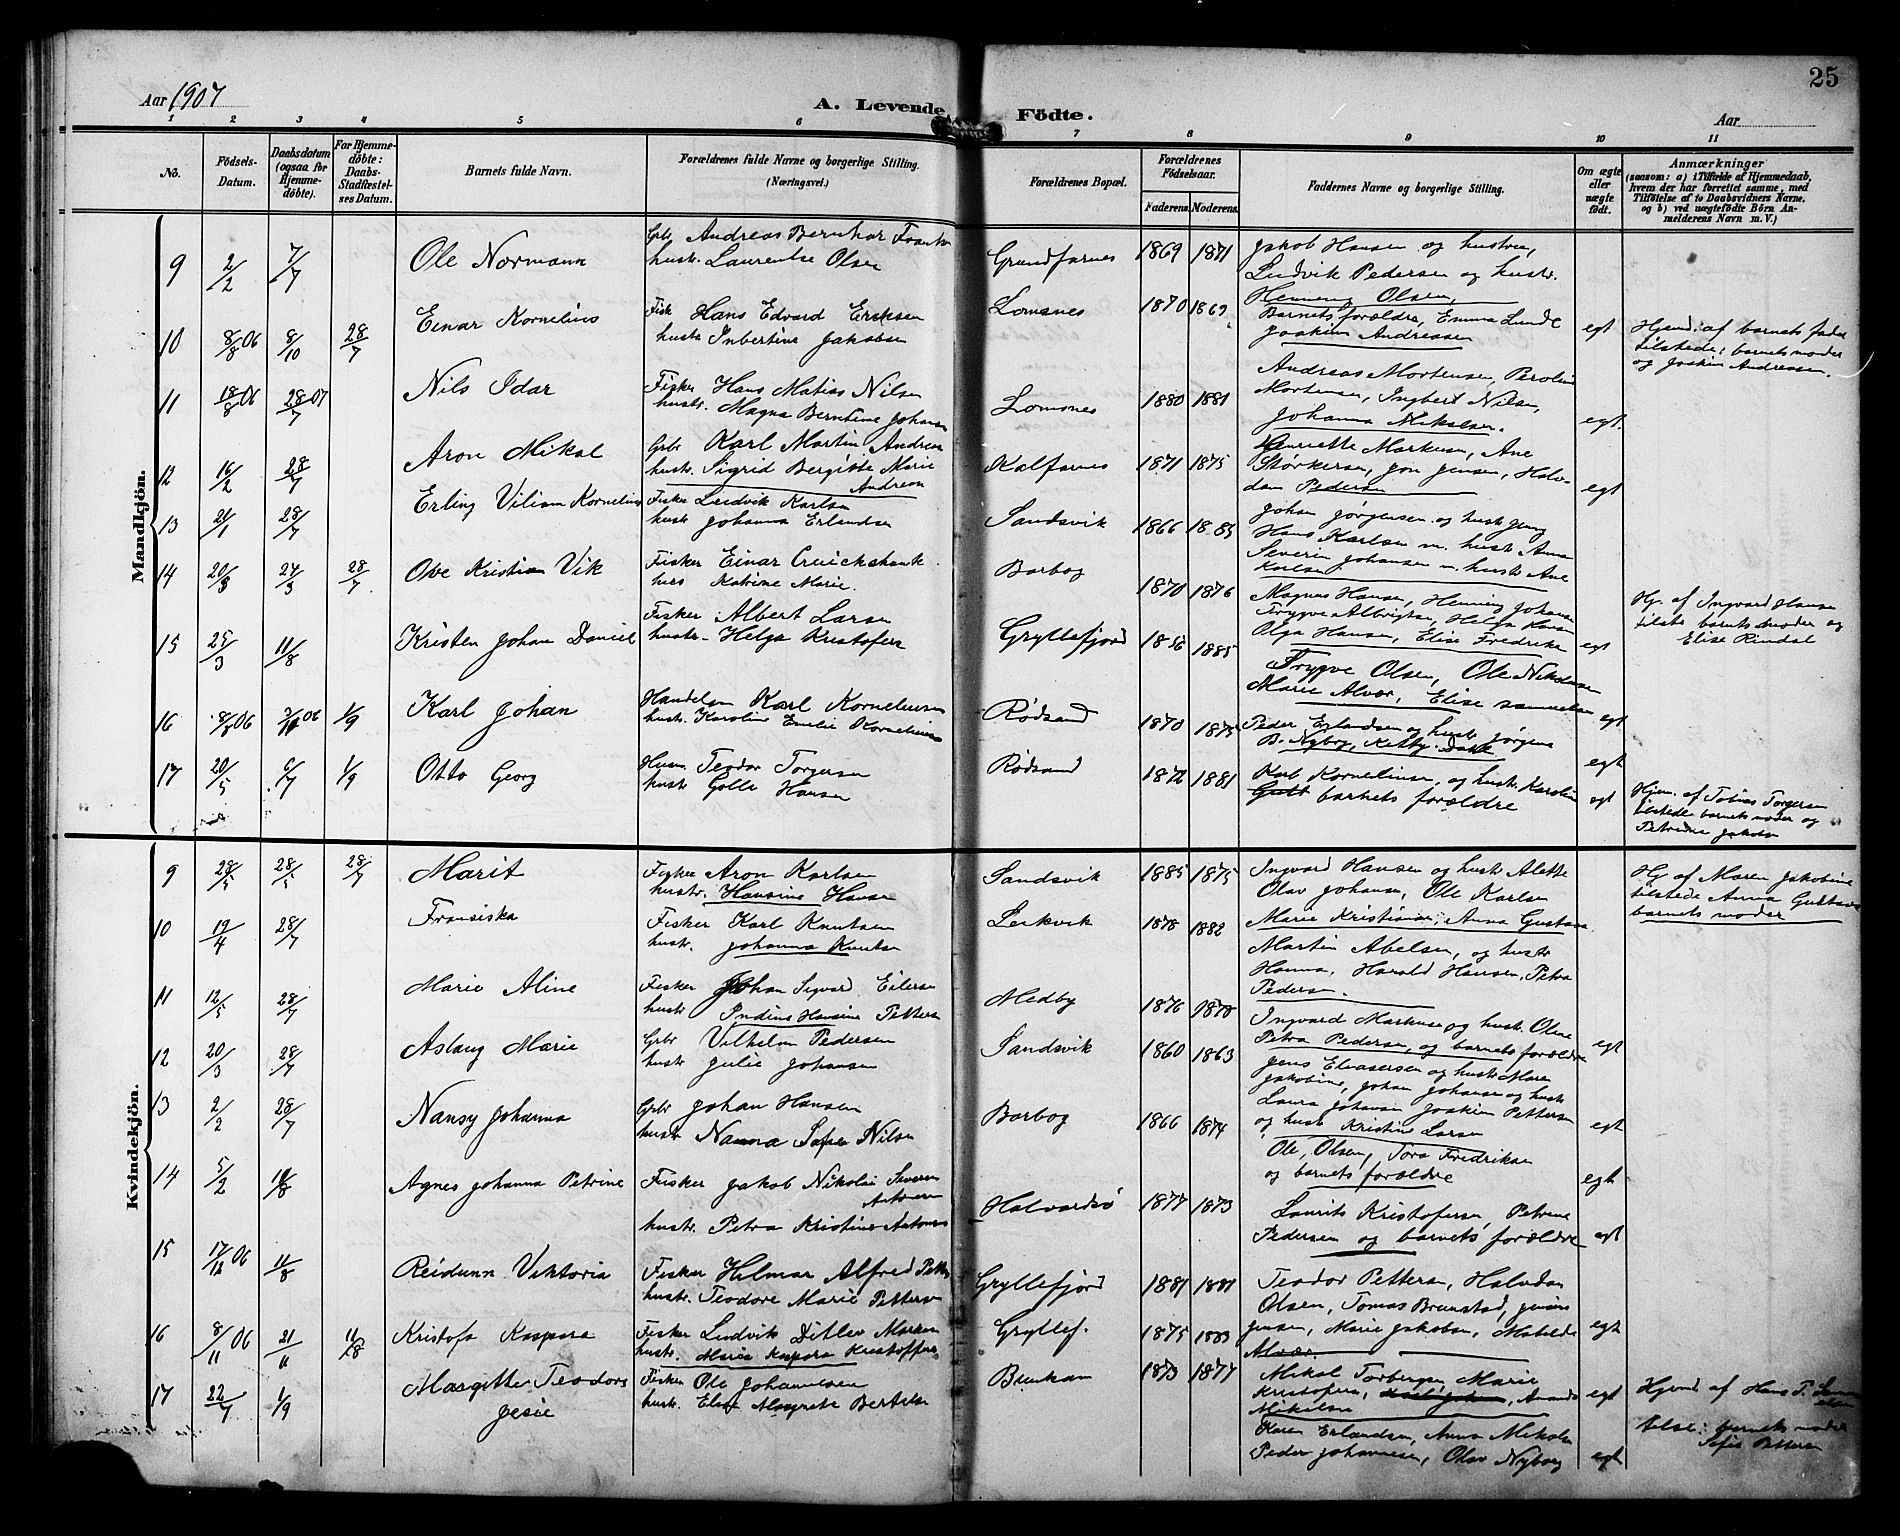 Aar 1907
A. Levende Födte.
Aar
25
1 2 3 4 5 6 7 8 9 10 11
No.
Födsels-Datum.
Daabsdatum (ogsaa for Hjemmedöbte).
For Hjemmedöbte: Daabs-Stadfæstelses Datum.
Barnets fulde Navn.
Forældrenes fulde Navne og borgerlige Stilling.
(Næringsvei.)
Forældrenes Bopæl.
Forældrenes Födselsaar.
Faderens. Moderens.
Faddernes Navne og borgerlige Stilling.
Om ægte eller uægte födt.
Anmærkninger
(saasom: a) i Tilfælde af Hjemmedaab, hvem der har forrettet samme, med Tilföielse af to Daabsvidners Navne, og b) ved uægtefödte Börn Anmelderens Navn m. V.)
Mandkjön.
9 2/2 7/7 Ole Normann
Grbr Andreas Bernhar
hustr Laurentse Olsen
1869 1871
Jakob Hansen og hustru,
Ludvik Pedersen og hustr.
Henning Olsen,
10 8/8 06 8/10 28/7 Einar Kornelius
Fisk Hans Edvard Eriksen
hustr Inbertine Jakobsen
Lomsnes 1870 1869
Barnets forældre, Emma Lunde
Joakim Andreasen
egt
Hjemd. af barnets fader
tilstede: barnets moder
og Joakim Andreasen.
11 18/8 06 28/7 07 Nils Idar
Fisker Hans Matias Nilsen
hustr. Magna Berntine Johansen
Lomsnes 1880 1881
Andreas Mortensen,
Mortensen, Ingbert Nilsen,
Johanna Nikolsen.
egt.
12 16/2 28/7 Aron Mikal
Grbr Karl Martin Andreas
hustr. Sigrid Bergitte Marie
Andreasen
Kalfarnes 1871 1875
Henriette Markusen, Ane
Størkersen, Jon Jensen, Halv-
dan Pedersen
egt
13 21/1 28/7 Erling Viliam Kornelius
Fisker Ludvik Karlsen
hust Johanna Erlandsen
Sandsvik 1866 1885
Johan Jørgensen og hust Jenny
Hans Karlsen m. hust Anna
Severin Johansen m. hustr Ane
Karlsen
14 20/3 24/3 28/7 Ove Kristian Vik
Fisker Einar Cruickshank
Katrine Marie.
Barbog 1870 1876
Magnus Hansen, Henning Johansen
Trygve Albrigtsen, Helga Hansen
Olga Hansen, Elise Fredriksen
egt
Hj. af Ingvard Hansen
tilste barnets moder og
Elise Rindal
15 25/3 11/8 Kristen Johan Daniel
Fisker Albert Larsen
hustr. Helga Kristofersen
Gryllefjord 1856 1885
Trygve Olsen, Ole Nikolaisen
Marie Alvær, Elise Samuelsen
egt
16 8/8 06 06 1/9 Karl Johan
Handelsm Karl Kornelius
hustr. Karoline Emilie Kornelius
Rødsand 1870 1875
Peder Erlandsen og hustr Jørgine
B. Nyborg, Ketty Dahl
egt
17 20/5 6/7 1/9 Otto Georg
Husm. Teodor Torgersen
hustr Golla Hansen
Rødsand 1872 1881
Karl Kornelinsen, og hustr. Karoline
barnets forældre
egt
Hjem. af Tobias Torgersen
tilstede barnets moder og
Petrine Jakobsen
Kvindekjön.
9 28/5 28/5 28/7 Marit
Fisker Aron Karlsen
hustr. Hansine Hansen
Sandsvik 1885 1875
Ingvard Hansen og hustr Alette
Olav Johansen, Ole Karlsen
Marie Kristiansen, Anna Gustavs
Hj af Maren Jakobine
tilstede Anna Gustavs
barnets moder
10 19/4 28/7 Fransiska
Fisker Karl Knutsen
hustr. Johanna Knutsen
Leikvik 1878 1882
Martin Abelsen, og hustr
Hanna, Harald Hansen, Petra
Pedersen.
11 12/5 28/7 Marie Aline
Fisker Johan Sigvard Eilersen
hustr Indine Hansine Pettersen
Medby 1876 1878
Ingvard Markusen og hustr. Oline
Petra Pedersen, og barnets forældre
egt
12 20/3 28/7 Aslaug Marie
Grbr Vilhelm Pedersen
hustr Julie Johansen
Sandsvik 1860 1863
Jens Elvasersen og hustr Maren
Jakobine, Johan Johansen og hustr
Laura Johansen Joakim Pettersen
og hustr Kristine Larsen
egt
13 2/2 28/7 Nansy Johanna
Grbr Johan Hansen
hustr Nanna Sofie Nilsen
Barbog 1866 1874
Ole Olsen, Tora Fredriksen
og barnets forældre
egt
14 5/2 11/8 Agnes Johanna Petrine
Fisker Jakob Nikolai Severin
Antonsen
hustr. Petra Kristine Antonsen
Halvardsø 1877 1873
Laurits Kristofersen, Petrine
Pedersen og barnets forældre
egt
15 17/12 06 11/8 Reidunn Viktoria
Fisker Hilmar Alfred Petters
hustr. Teodore Marie Pettersen
Gryllefjord 1881 1881
Teodor Pettersen, Halvdan
Olsen, Tomas Brunstad, Jenine
Jensen, Marie Jakobsen, Matilde
Alvær
egt
16 8/11 06 21/11 11/8 Kristofa Kaspara
Fisker Ludvik Ditlev Markusen
hustr. Maria Kaspara Kristoffers
Gryllef. 1875 1883
Mikal Torbergsen, Marie
Kristofersen, Amanda
Mikalsen
egt
Hjemd af Hans P.
tilst: barnets moder
Sofie Pettersen
17 22/7 1/9 Margitte Teodors
Jesie
Fisker Ole Johannesen
hustr. Elise Margrete Bertelsen
Bunkan 1873 1877
Karen Erlandsen, Anna Mikalsen
Peder Johannesen, Olav Nyborg
egt